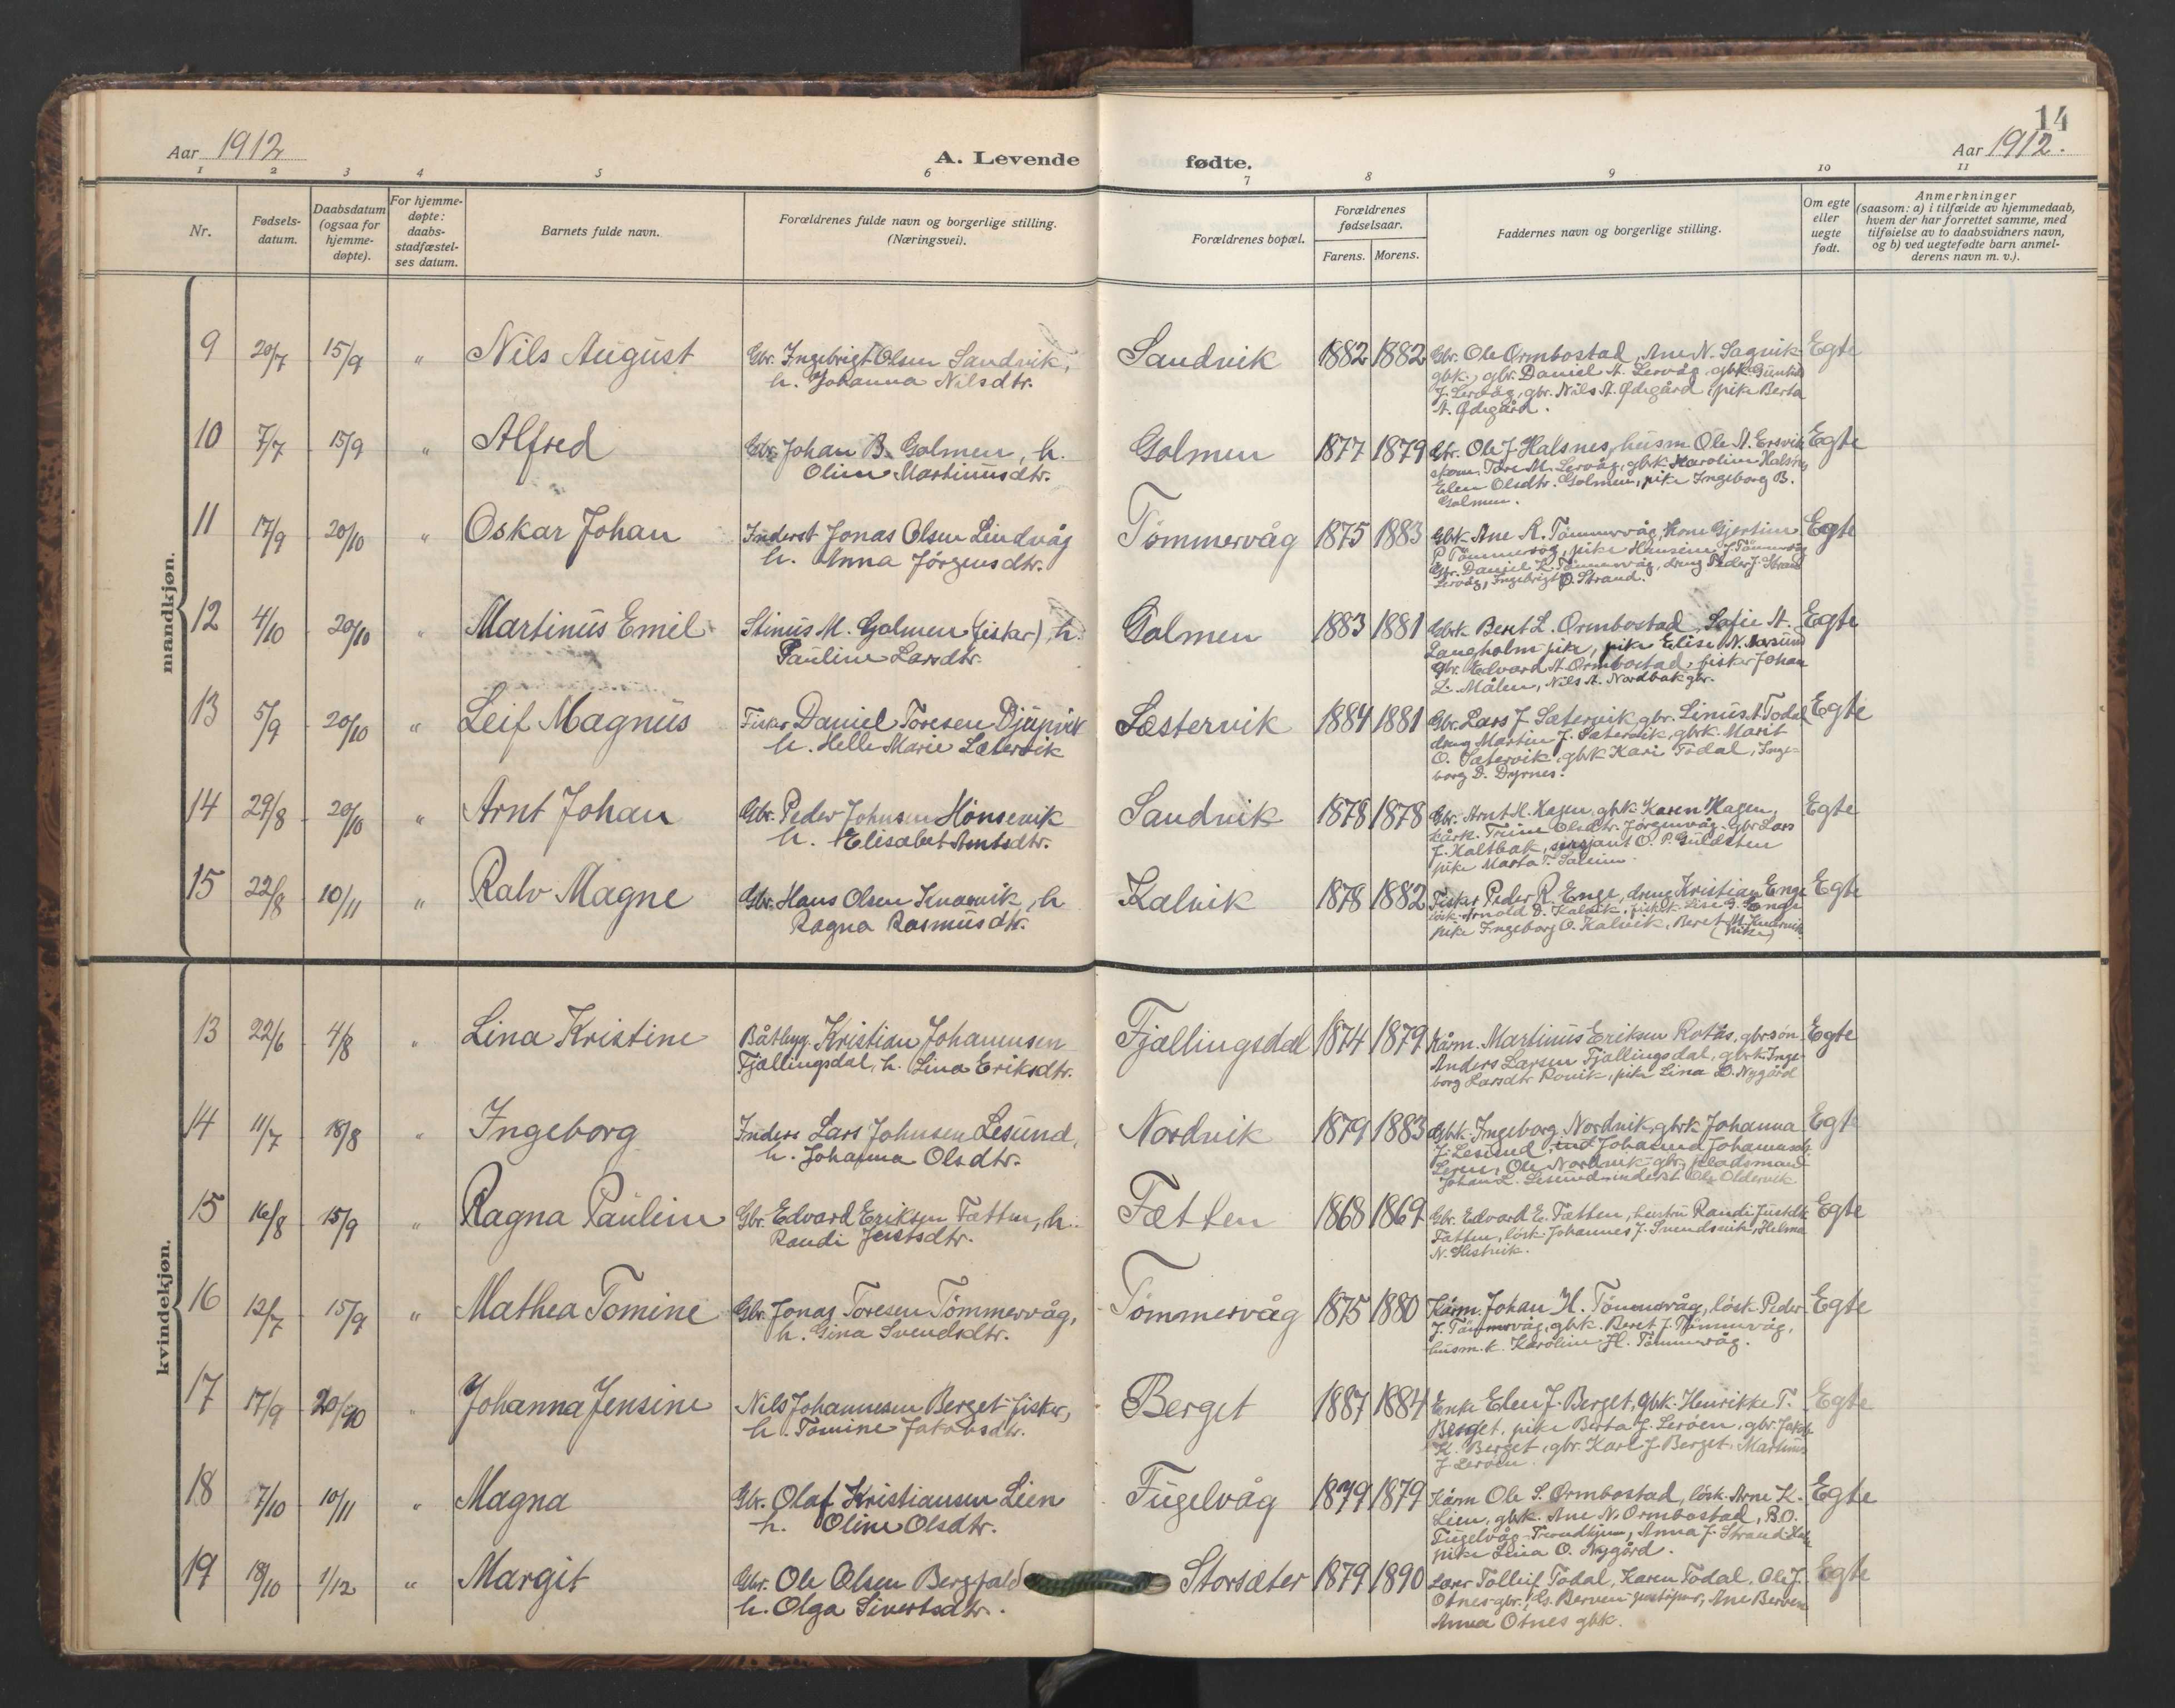 14
Aar 1912
A. Levende fødte.
Aar 1912.
1 2 3 4 5 6 7 8 9 10 11
Nr.
Fødselsdatum.
Daabsdatum (ogsaa for hjemmedøpte).
For hjemmedøpte: daabsstadfæstelses datum.
Barnets fulde navn.
Forældrenes fulde navn og borgerlige stilling. (Næringsvei).
Forældrenes bopæl.
Forældrenes fødselsaar.
Farens. Morens.
Faddernes navn og borgerlige stilling.
Om egte eller uegte født.
Anmerkninger (saasom: a) i tilfælde av hjemmedaab, hvem der har forrettet samme, med tilføielse av to daabsvidners navn, og b) ved uegtefødte barn anmelderens navn m. v.).
mandkjøn.
9 20/7 15/9 " Nils August Gbr. Ingebrigt Olsen Sandvik, h. Johanna Nilsdtr. Sandvik 1882 1882 Gbr. Ole Ormbostad, Ane N. Sagvik gbk., gbr. Daniel A. Lervåg, gbk. J. Lervåg, gbr. Nils A. Ødegård, pike Berta A. Ødegård. Egte
10 7/7 15/9 " Alfred Gbr. Johan B. Golmen, h. Oline Martinusdtr. Golmen 1877 1879 Gbr. Ole J. Halsnes, husm. Ole A. Ersvik Tore M. Lervåg, gbk. Karoline Halsnes Elen Olsdtr. Golmen, pike Ingeborg B. Golmen. Egte
11 17/9 20/10 " Oskar Johan Inderst Jonas Olsen Leirvåg h. Anna Jörgensdtr. Tömmervåg 1875 1883 Gbk. Ane R. Tömmervåg, Kone Gjertine P. Tömmervåg, pike Hansine J. Tömmervåg Gbr. Daniel K. Tömmervåg, dreng Peder J. Strand Lervåg, Ingebrigt O. Strand. Egte
12 4/10 20/10 " Martinus Emil Stinus M. Golmen (fisker), h. Pauline Larsdtr. Golmen 1883 1881 Gbrk. Beret L. Ormbostad, Sofie A. Langholm pike, pike Elise N. Gbr. Edvard A. Ormbostad, fisker Johan L. Målen, Nils A. Nordbak gbr. Egte
13 5/9 20/10 " Leif Magnus Fisker Daniel Toresen Djupvik h. Helle Marie Sætervik Sæstervik 1884 1881 Gbr. Lars J. Sætervik, gbr. Linus A. Todal dreng Martin J. Sætervik, gbrk. Marit O. Sætervik, gbk Kari Todal, Ingeborg D. Dyrnes. Egte
14 29/8 20/10 " Arnt Johan Gbr. Peder Johnsen Hönsevik h. Elisabet Arntsdtr. Sandvik 1878 1878 Gbr. Arnt H. Hagen, gbk. Karen Hagen, kårk. Trine Olsdtr. Jörgenvåg, gbr. Lars J. Haltbak, sersjant O. P. Guldsten pike Marta T. Egte
15 22/8 10/11 " Ralv Magne Gbr. Hans Olsen Knarvik, h Ragna Rasmusdtr. Kalvik 1878 1882 Fisker Peder R. Enge, dreng Kristian Enge lösk. Arnold D. Kalvik, pike Lise G. Enge pike Ingeborg O. Kalvik, Beret M. Knarvik (pike) Egte
kvindekjøn.
13 22/6 4/8 " Lina Kristine Båtbyg. Kristian Johannsen Fjællingsdal, h. Lina Eriksdtr. Fjællingsdal 1874 1879 Kårm. Martinus Eriksen Rotås, gbrsön Anders Larsen Fjællingsdal, gbrk. Ingeborg Larsdtr Rovik, pike Lina D. Nygård Egte
14 11/7 18/8 " Ingeborg Inders Lars Johnsen Lesund, h. Johanna Olsdtr. Nordvik 1879 1883 Gbk. Ingeborg Nordvik, gbrk Johanna J. Lesund, ind. Johanna Ole Nordvik gbr., pladsmand Johan L. Lesund inderst Ole Oldervik Egte
15 16/8 15/9 " Ragna Paulein Gbr. Edvard Eriksen Fætten, h. Randi Justsdtr. Fætten 1868 1869 Gbr. Edvard E. Fætten, hustru Randi Justdtr. Fætten, lösk. Johannes J. Svendsvik, Helma N. Egte
16 12/7 15/9 " Mathea Tomine Gbr. Jonas Toresen Tömmervåg, h. Gina Svendsdtr. Tömmervåg 1875 1880 Kårm. Johan H. Tömmervåg, lösk Peder J. Tömmervåg, gbk. Beret J. Tömmervåg, husm. k. Karoline H. Tömmervåg. Egte
17 17/9 20/90 " Johanna Jensine Nils Johannesen Berget fisker, h. Tomine Jakobsdtr. Berget 1887 1884 Enke Elen J. Berget, gbk. Henrikke T. Berget, pike Berta J. Leröen, gbr. Jakob K. Berget, gbr. Karl J. Berget, Martinus J. Leröen. Egte
18 7/10 10/11 " Magna Gbr. Olaf Kristiansen Lien h. Oline Olsdtr. Fugelvåg 1879 1879 Kårm Ole S. Ormbostad, lösk. Arne K. Lien, gbk. Ane N. Ormbostad, B.O. Fugelvåg Trondhjem, Anna J. Strand pike Lina O. Nygård. Egte
19 18/10 1/12 " Margit Gbr. Ole Olsen Bergfald h. Olga Sivertsdtr. Storsæter 1879 1890 Lærer Tolleif Todal, Karen Todal, Ole J. Otnes gbr., Berven Ane Berven Anna Otnes gbk. Egte